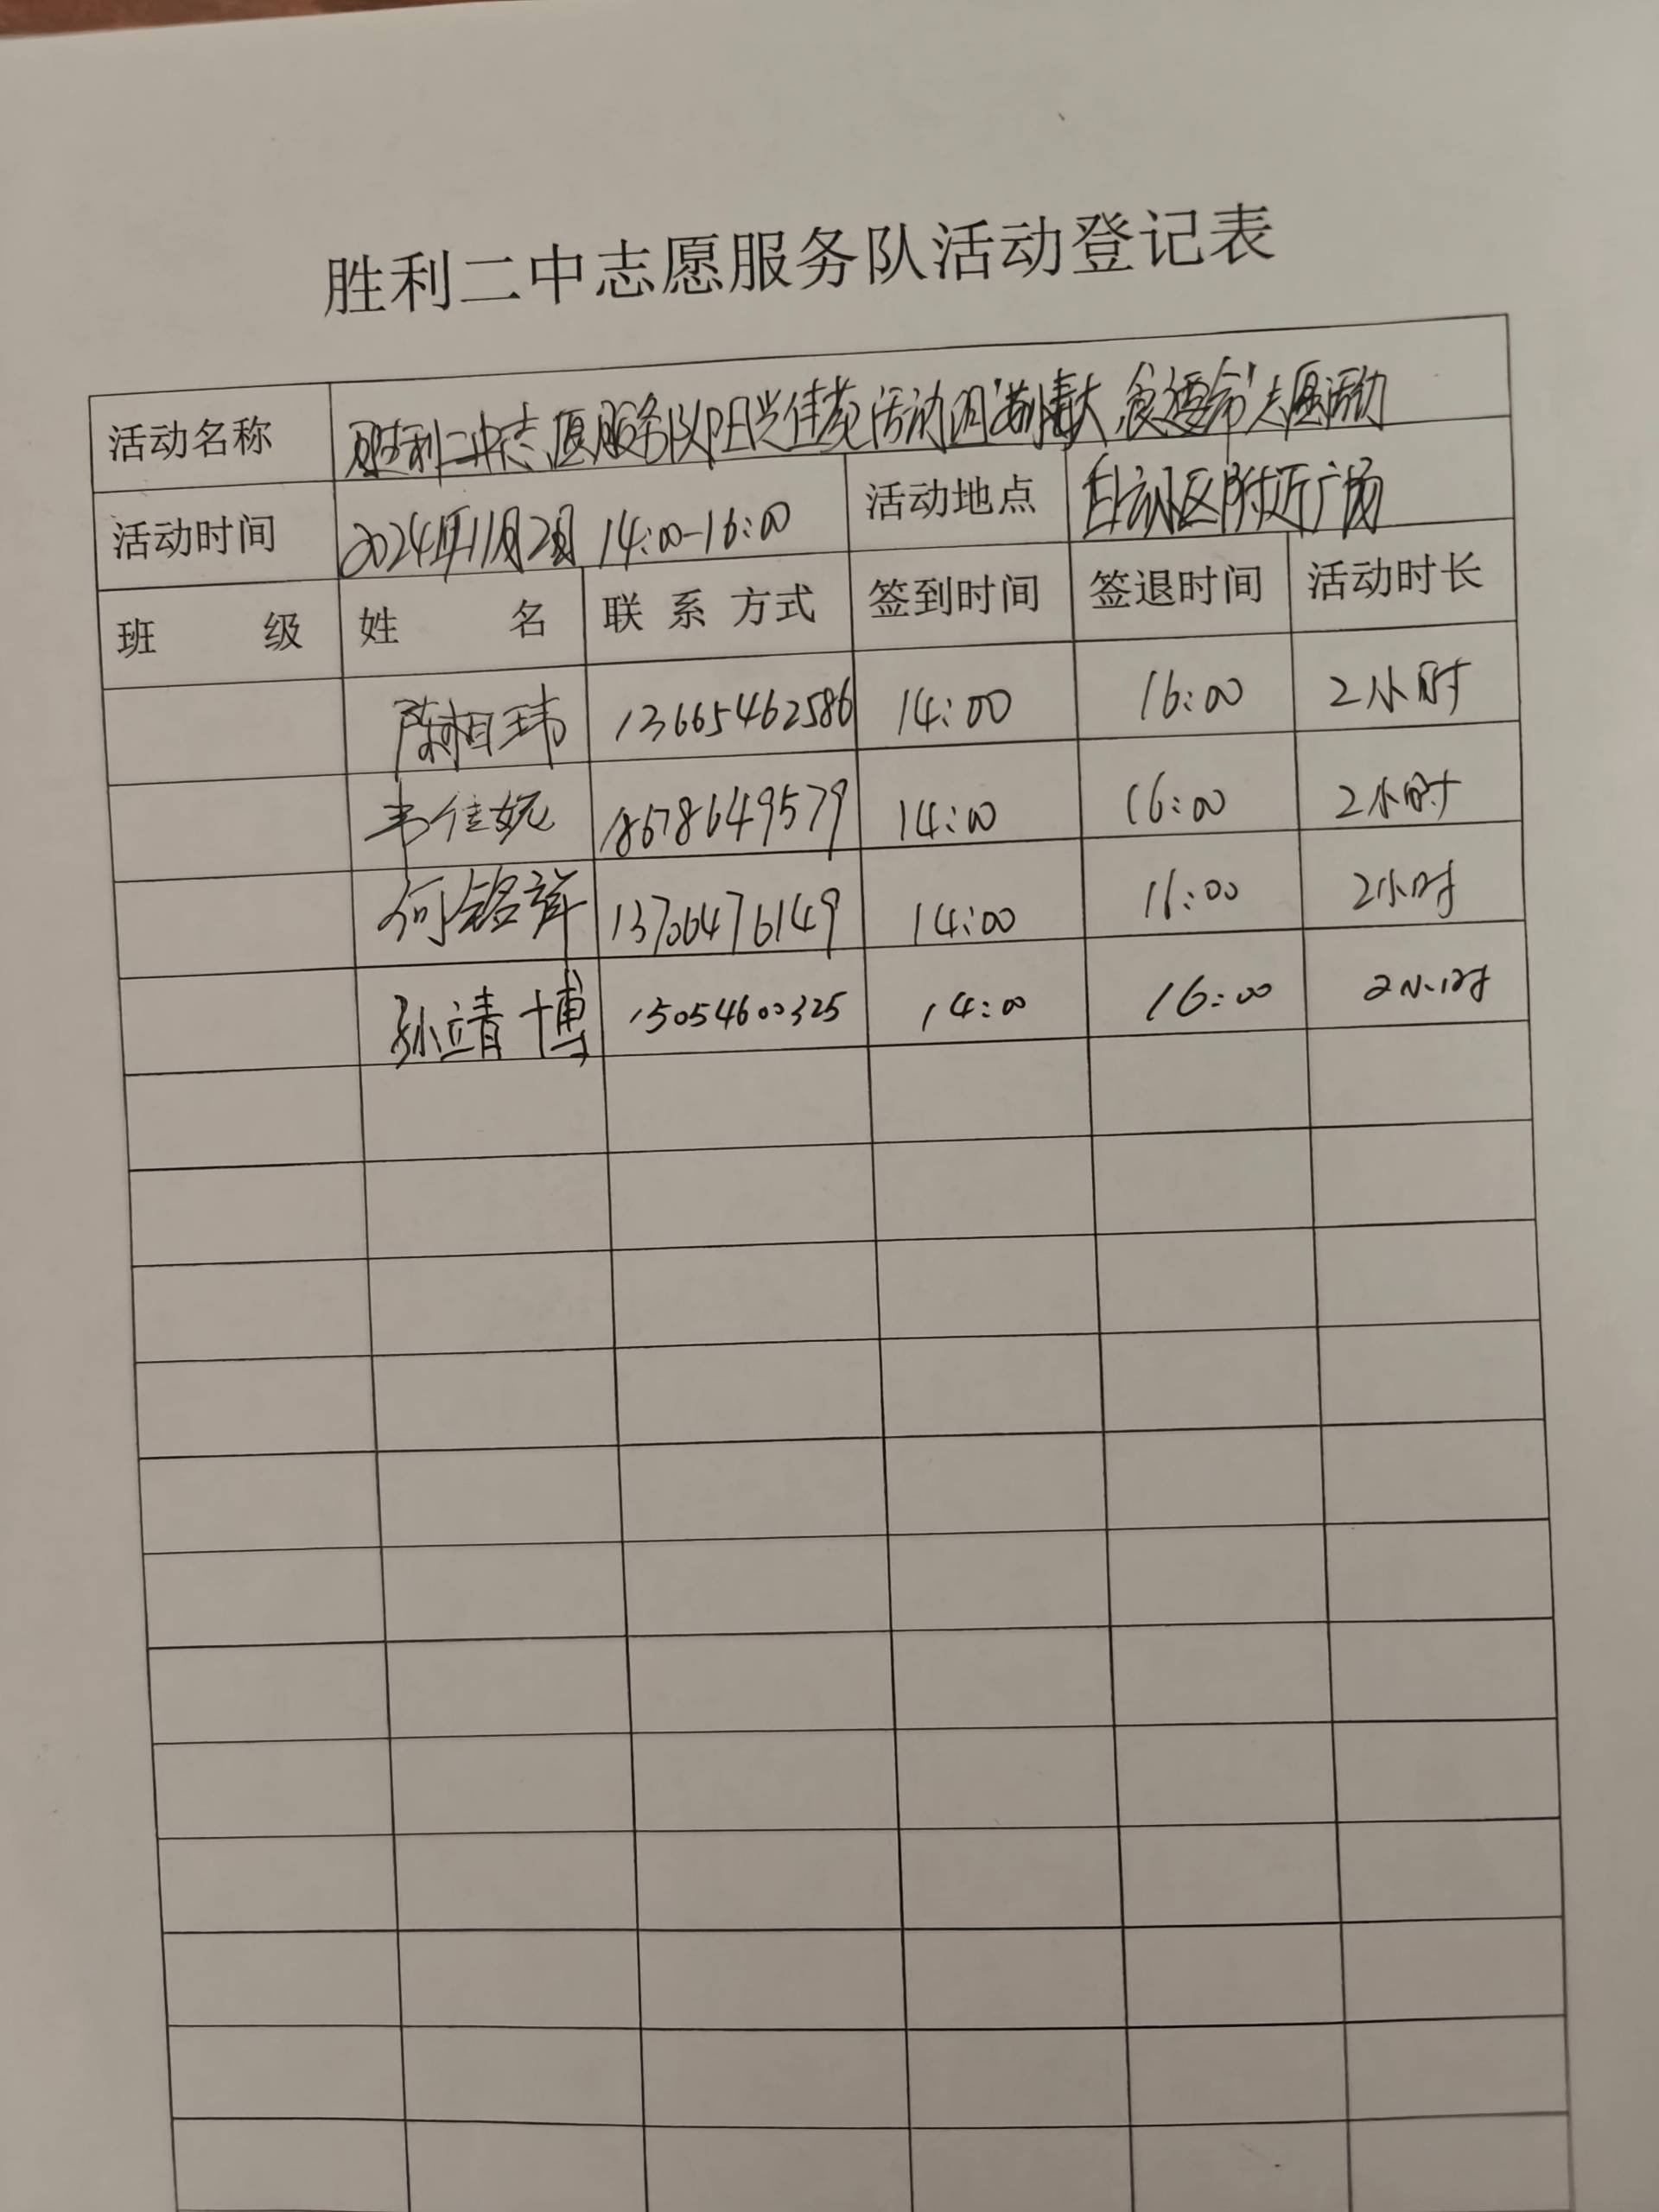 胜利二中志愿服务队活动登记表
活动名称 胜利二中志愿服务队阳兴佳苑活动团“大食 志愿活动
活动时间 2024年11月2日 14:00-16:00 活动地点 小区附近广场
班 级 姓 名 联 系 方式 签到时间 签退时间 活动时长
陈相玮 13665462586 14:00 16:00 2小时
韦佳妮 18678649579 14:00 16:00 2小时
何铭祥 13706476149 14:00 16:00 2小时
孙靖博 15054600325 14:00 16:00 2小时